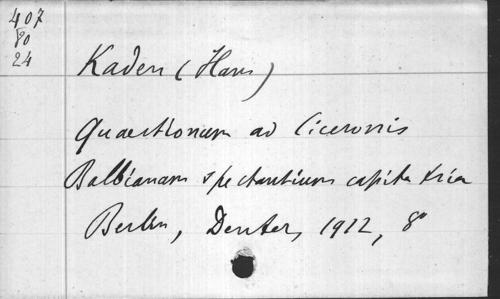 407
80
24
Kaden (Hans)
Quaestionum ad Ciceronis
Balbianam spectantium capita tria
Berlin, Denter, 1912, 8°